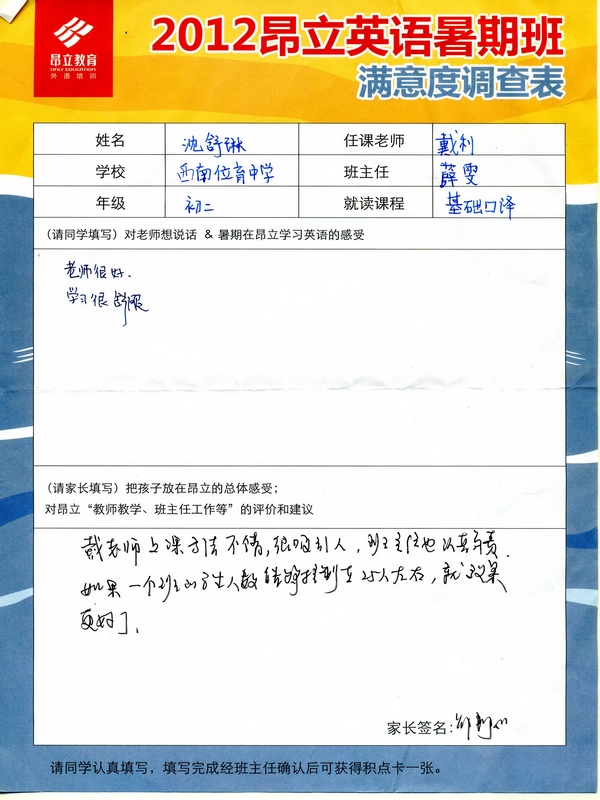 昂立教育
ONLY EDUCATION
外语培训
2012昂立英语暑期班
满意度调查表
姓名 沈舒琳 任课老师 戴利
学校 西南位育中学 班主任 薛雯
年级 初二 就读课程 基础口译
(请同学填写)对老师想说话 & 暑期在昂立学习英语的感受
老师很好.
学习很舒服
(请家长填写)把孩子放在昂立的总体感受;
对昂立“教师教学、班主任工作等”的评价和建议
戴老师上课方法不错,很吸引人,班主任也认真负责.
如果一个班的学生人数能够控制在25人左右,就效果
更好了.
家长签名:
请同学认真填写，填写完成经班主任确认后可获得积点卡一张。